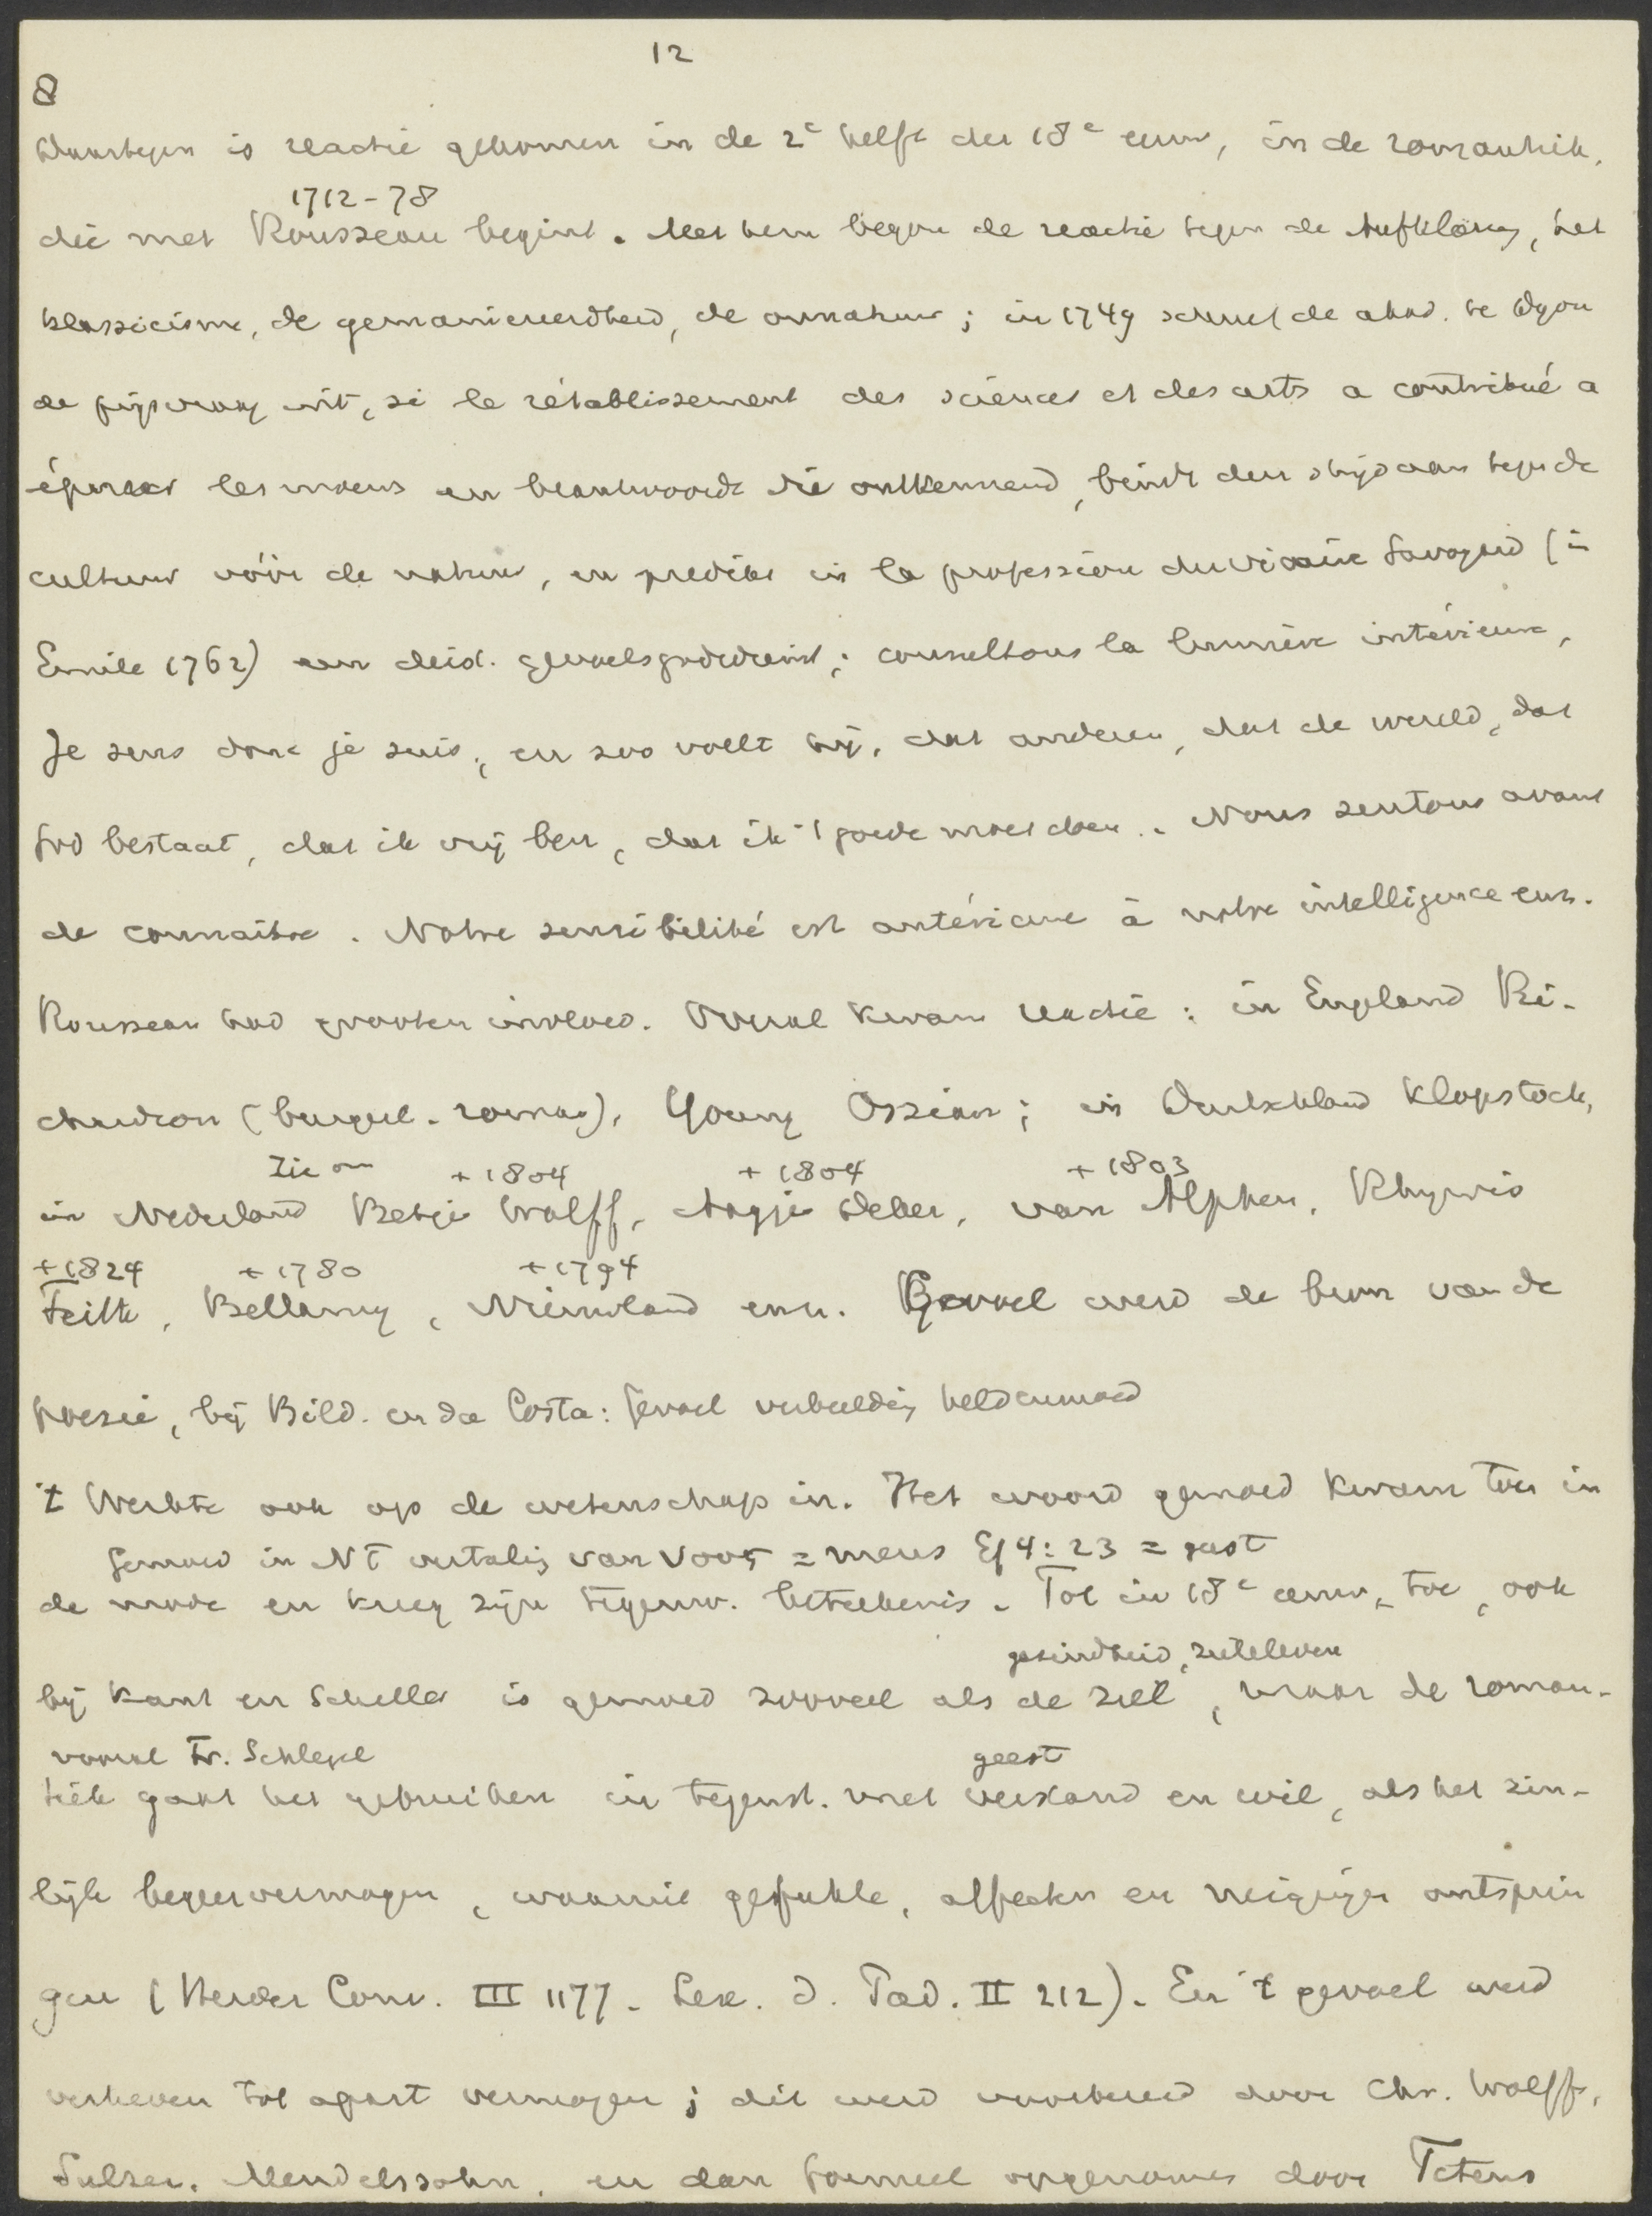 12
8
Daartegen is reactie gekomen in de 2e helft der 18e eeuw, in de romantiek,
1712-78
die met Rousseau begint. Met hem begon de reactie tegen de Aufklärung, het
klassicisme, de gemanieerdheid, de onnatuur; in 1749 schreef de akad. te Dyon
de prijsvraag uit, si le rétablissement des sciences et des arts a contribué a
épurer les moeurs en beantwoordt die ontkennend, bindt den strijd aan tegen de
cultuur vóór de natuur, en predikt in la profession du vicaire Savoyard (in
Emile 1762) een deist. gevoelsgodsdienst; consultons la lumière intérieure,
Je sens donc je suis, en zoo voelt hij, dat anderen, dat de wereld, dat
God bestaat, dat ik vrij ben, dat ik 't goede moet doen. Nous sentons avant
de connaitre. Notre sensibilité est antérieure à notre intelligence enz.
Rousseau had grooten invloed. Overal kwam reactie: in England Ri-
chardson (burgerl. roman), Young Ossian; in Duitschland Klopstock,
+ 1804 + 1804 + 1803
in Nederland Betje Wolff, Aagje Deken, van Alphen, Rhijnvis
+1824 + 1780 +1794
Feith, Bellamy, Nieuwland enz. Gevoel werd de bron van de
poezie, bij Bild. en da Costa: gevoel verbeelding heldenmoed
't Werkte ook op de wetenschap in. Het woord gemoed kwam toen in
Gemoed in NT vertaling van νους = mens Ef 4:23 = geest
de mode en kreeg zijn tegenw. beteekenis. Tot in 18e eeuw toe, ook
gezindheid, zieleleven
bij Kant en Schiller is gemoed zooveel als de ziel, maar de roman-
vooral Fr. Schlegel geest
tiek gaat het gebruiken in tegenst. met verstand en wil, als het zin-
lijk begeervermogen, waaruit gefuhle, affecten en neigingen ontsprin
gen (Herder Conv. III 1177. Lex. d. Päd. II 212). En 't gevoel werd
verheven tot apart vermogen; dit werd voorbereid door Chr. Wolff,
Sulzer, Mendelssohn, en dan formeel opgenomen door Tetens